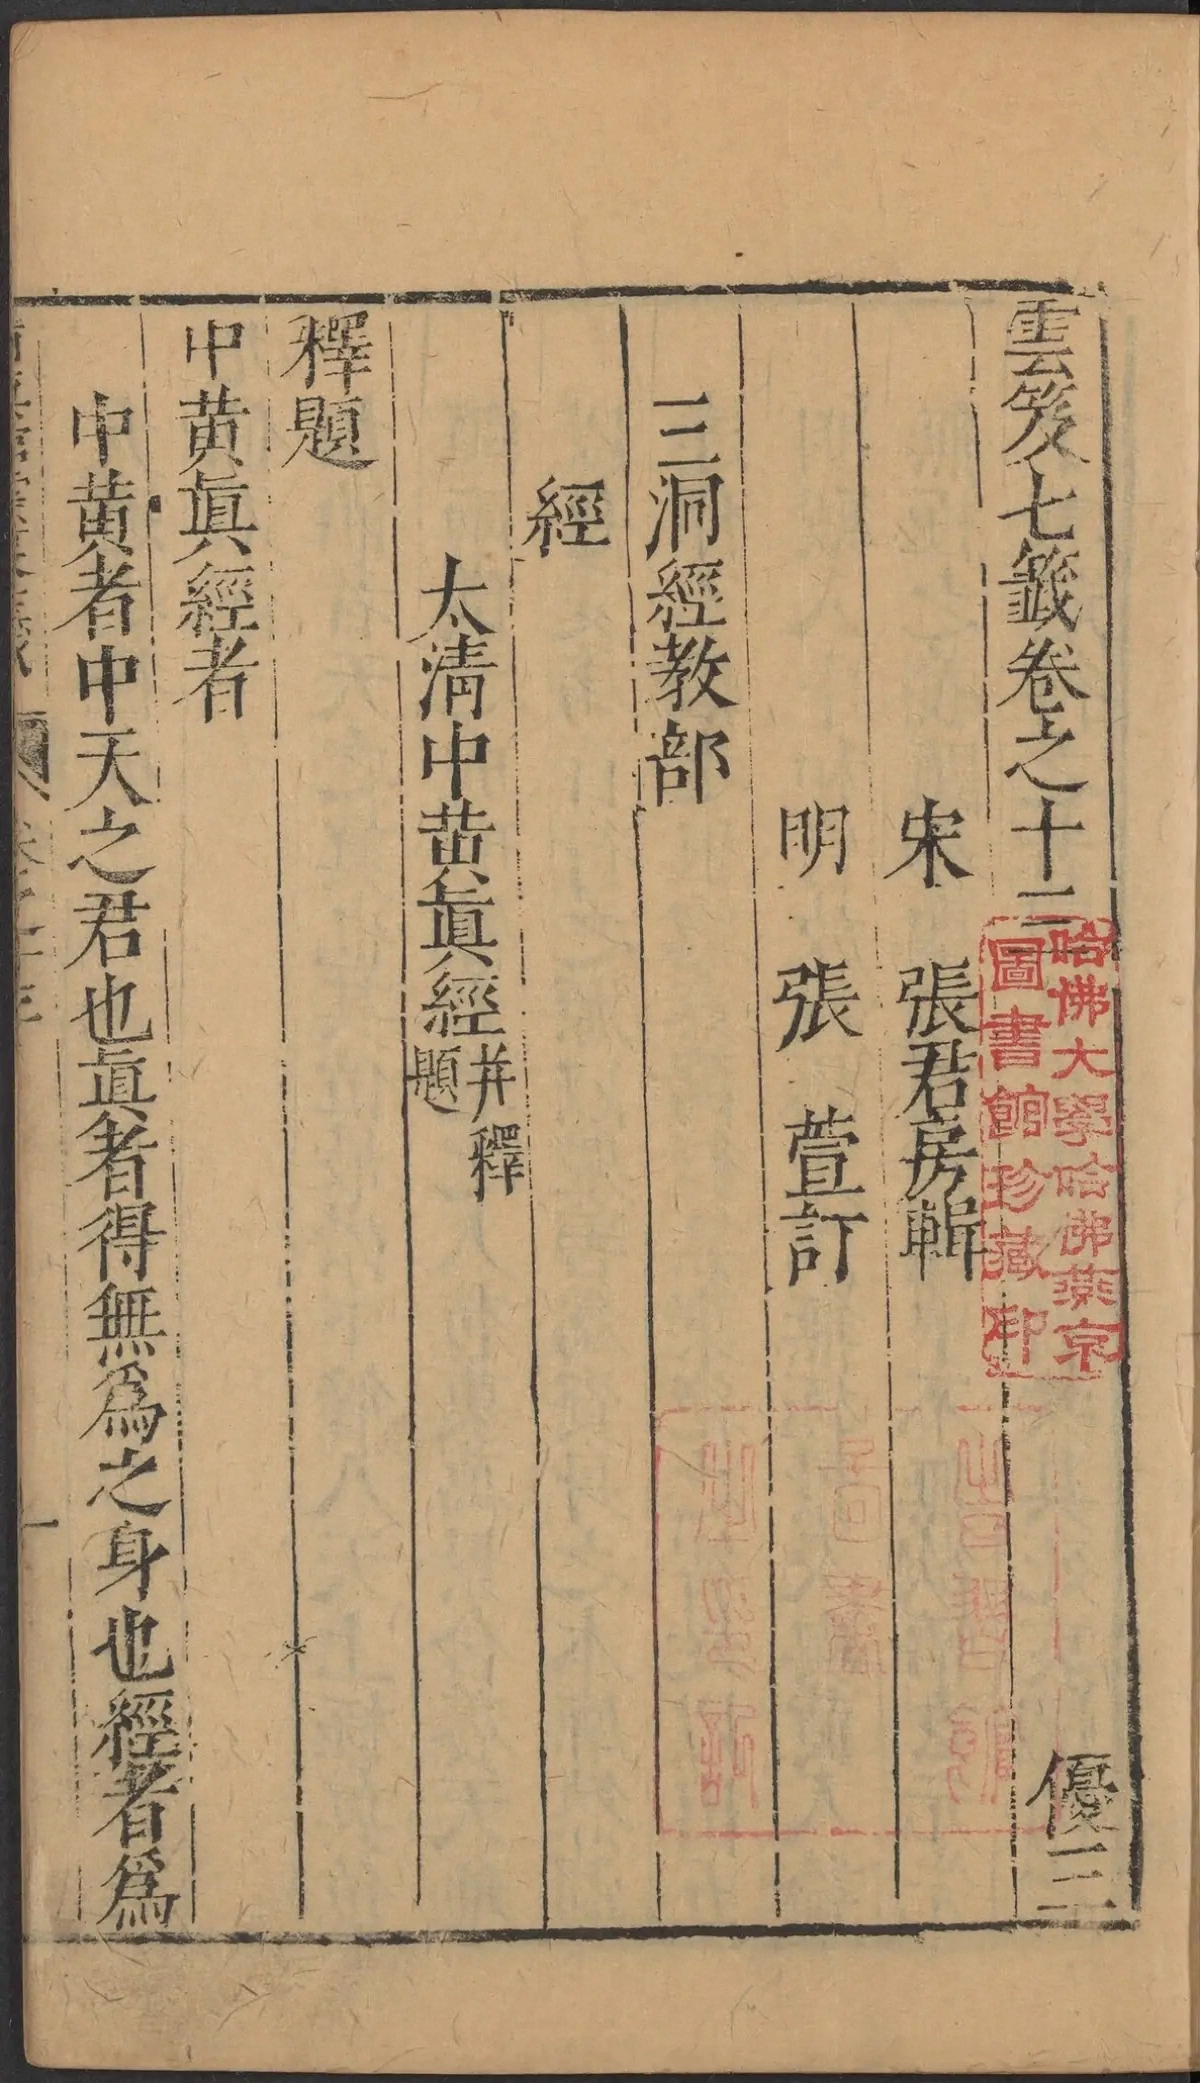 雲笈七籤卷之十三
優三
宋 張君房輯
明 張 萱訂
三洞經教部
經
太清中黃眞經并釋題
釋題
中黃眞經者
中黃者中天之君也眞者得無爲之身也經者爲
哈佛大學哈佛燕京
圖書館珍藏印